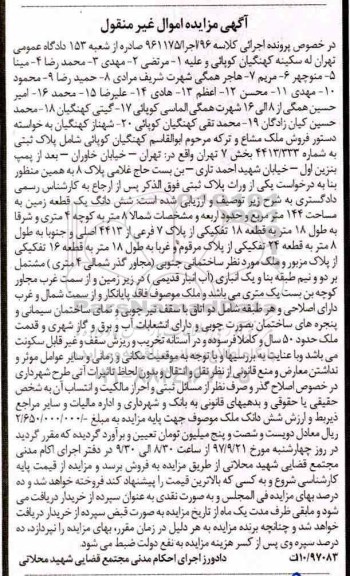 آگهی مزایده اموال غیر منقول
در خصوص پرونده اجرائی کلاسه ۷۹۶اجرا/۹۶۱۱۷۵ صادره از شعبه ۱۵۳ دادگاه عمومی
تهران له سکینه کهنگیان کوپائی و علیه ۱- مرتضی ۲- مهدی ۳- محمد رضا ۴- مینا
۵- منوچهر ۶- مریم ۷- هاجر همگی شهرت شریف مرادی ۸- حمید رضا ۹- محمود
۱۰- مهدی ۱۱- محسن ۱۲- اعظم ۱۳- هادی ۱۴- علیرضا ۱۵- محمد ۱۶- امیر
حسین همگی از ۸ الی ۱۶ شهرت همگی الماسی کوپائی ۱۷- گیتی کهنگیان ۱۸- محمد
حسین کیان زادگان ۱۹- محمد تقی کهنگیان کوپائی ۲۰- شهناز کهنگیان به خواسته
دستور فروش ملک مشاع و ترکه مرحوم ابوالقاسم کهنگیان کوپائی شامل پلاک ثبتی
به شماره ۴۴۱۳/۳۳۳ بخش ۷ تهران واقع در: تهران – خیابان خاوران – بعد از پمپ
بنزین اول – خیابان شهید احمد تاری – بن بست حاج غلامی پلاک ۸ به همین منظور
بنا به درخواست یکی از وراث پلاک ثبتی فوق الذکر پس از ارجاع به کارشناس رسمی
دادگستری به شرح زیر توصیف و ارزیابی شده است: شش دانگ یک قطعه زمین به
مساحت ۱۴۴ متر مربع، حدود اربعه و مشخصات شمالا ۸ متر به کوچه ۴ متری و شرقا
به طول ۱۸ متر به قطعه ۱۸ تفکیکی از پلاک ۷ فرعی از ۴۴۱۳ اصلی و جنوبا به طول
۸ متر به قطعه ۲۴ تفکیکی از پلاک مرقوم و غربا به طول ۱۸ متر به قطعه ۱۶ تفکیکی
از پلاک مزبور و ملک مورد نظر ساختمانی جنوبی (مجاور گذر شمالی ۴ متری) مشتمل
بر دو و نیم طبقه بنا و یک انباری (آب انبار قدیمی) در زیر زمین و از سمت غرب مجاور
کوچه بن بست یک متری می باشد و ملک موصوف فاقد پایانکار و از سمت شمال و غرب
دارای اصلاحی و هر طبقه شامل دو اتاق با سقف تیر چوبی و نمای ساختمان سیمانی و
پنجره های ساختمان بصورت چوبی و دارای انشعابات آب و برق و گاز شهری و قدمت
ملک حدود ۵۰ سال و کاملا فرسوده و در آستانه تخریب و ریزش سقف و غیر قابل سکونت
می باشد و با عنایت به بررسیها و با توجه به موقعیت مکانی و زمانی و سایر عوامل موثر و
نداشتن معارض و منع قانونی از نظر نقل و انتقال و بدون لحاظ تاثیرات آتی طرح شهرداری
در خصوص اصلاح گذر و صرف نظر از مسائل ثبتی و احراز مالکیت و انتساب آن به شخص
حقیقی یا حقوقی و بدهیهای قانونی به بانک و شهرداری و اداره مالیات و سایر مراجع
ذیربط و ارزش شش دانگ ملک موصوف جهت پایه مزایده به مبلغ ۲/۶۵۰/۰۰۰/۰۰۰/-
ریال معادل دویست و شصت و پنج میلیون تومان تعیین و برآورد گردیده که مقرر گردید
در روز چهارشنبه مورخ ۹۷/۹/۲۱ از ساعت ۸/۳۰ الی ۹/۳۰ در دفتر اجرای احکام مدنی
مجتمع قضایی شهید محلاتی از طریق مزایده به فروش برسد و مزایده از قیمت پایه
کارشناسی شروع و به کسی که بالاترین قیمت را پیشنهاد کند فروخته خواهد شد و ده
درصد بهای مزایده فی المجلس و به صورت نقدی به عنوان سپرده از خریدار دریافت می
شود و مابقی ظرف مدت یک ماه از تاریخ مزایده به صورت قبض سپرده از خریدار دریافت
خواهد شد و چنانچه برنده مزایده به هر دلیل در زمان مقرر، بهای مزایده را نپردازد، ده
درصد سپرده وی پس از کسر هزینه مزایده به نفع دولت ضبط می شود.
۱۰/۹۷۰۸۳ت دادورز اجرای احکام مدنی مجتمع قضایی شهید محلاتی